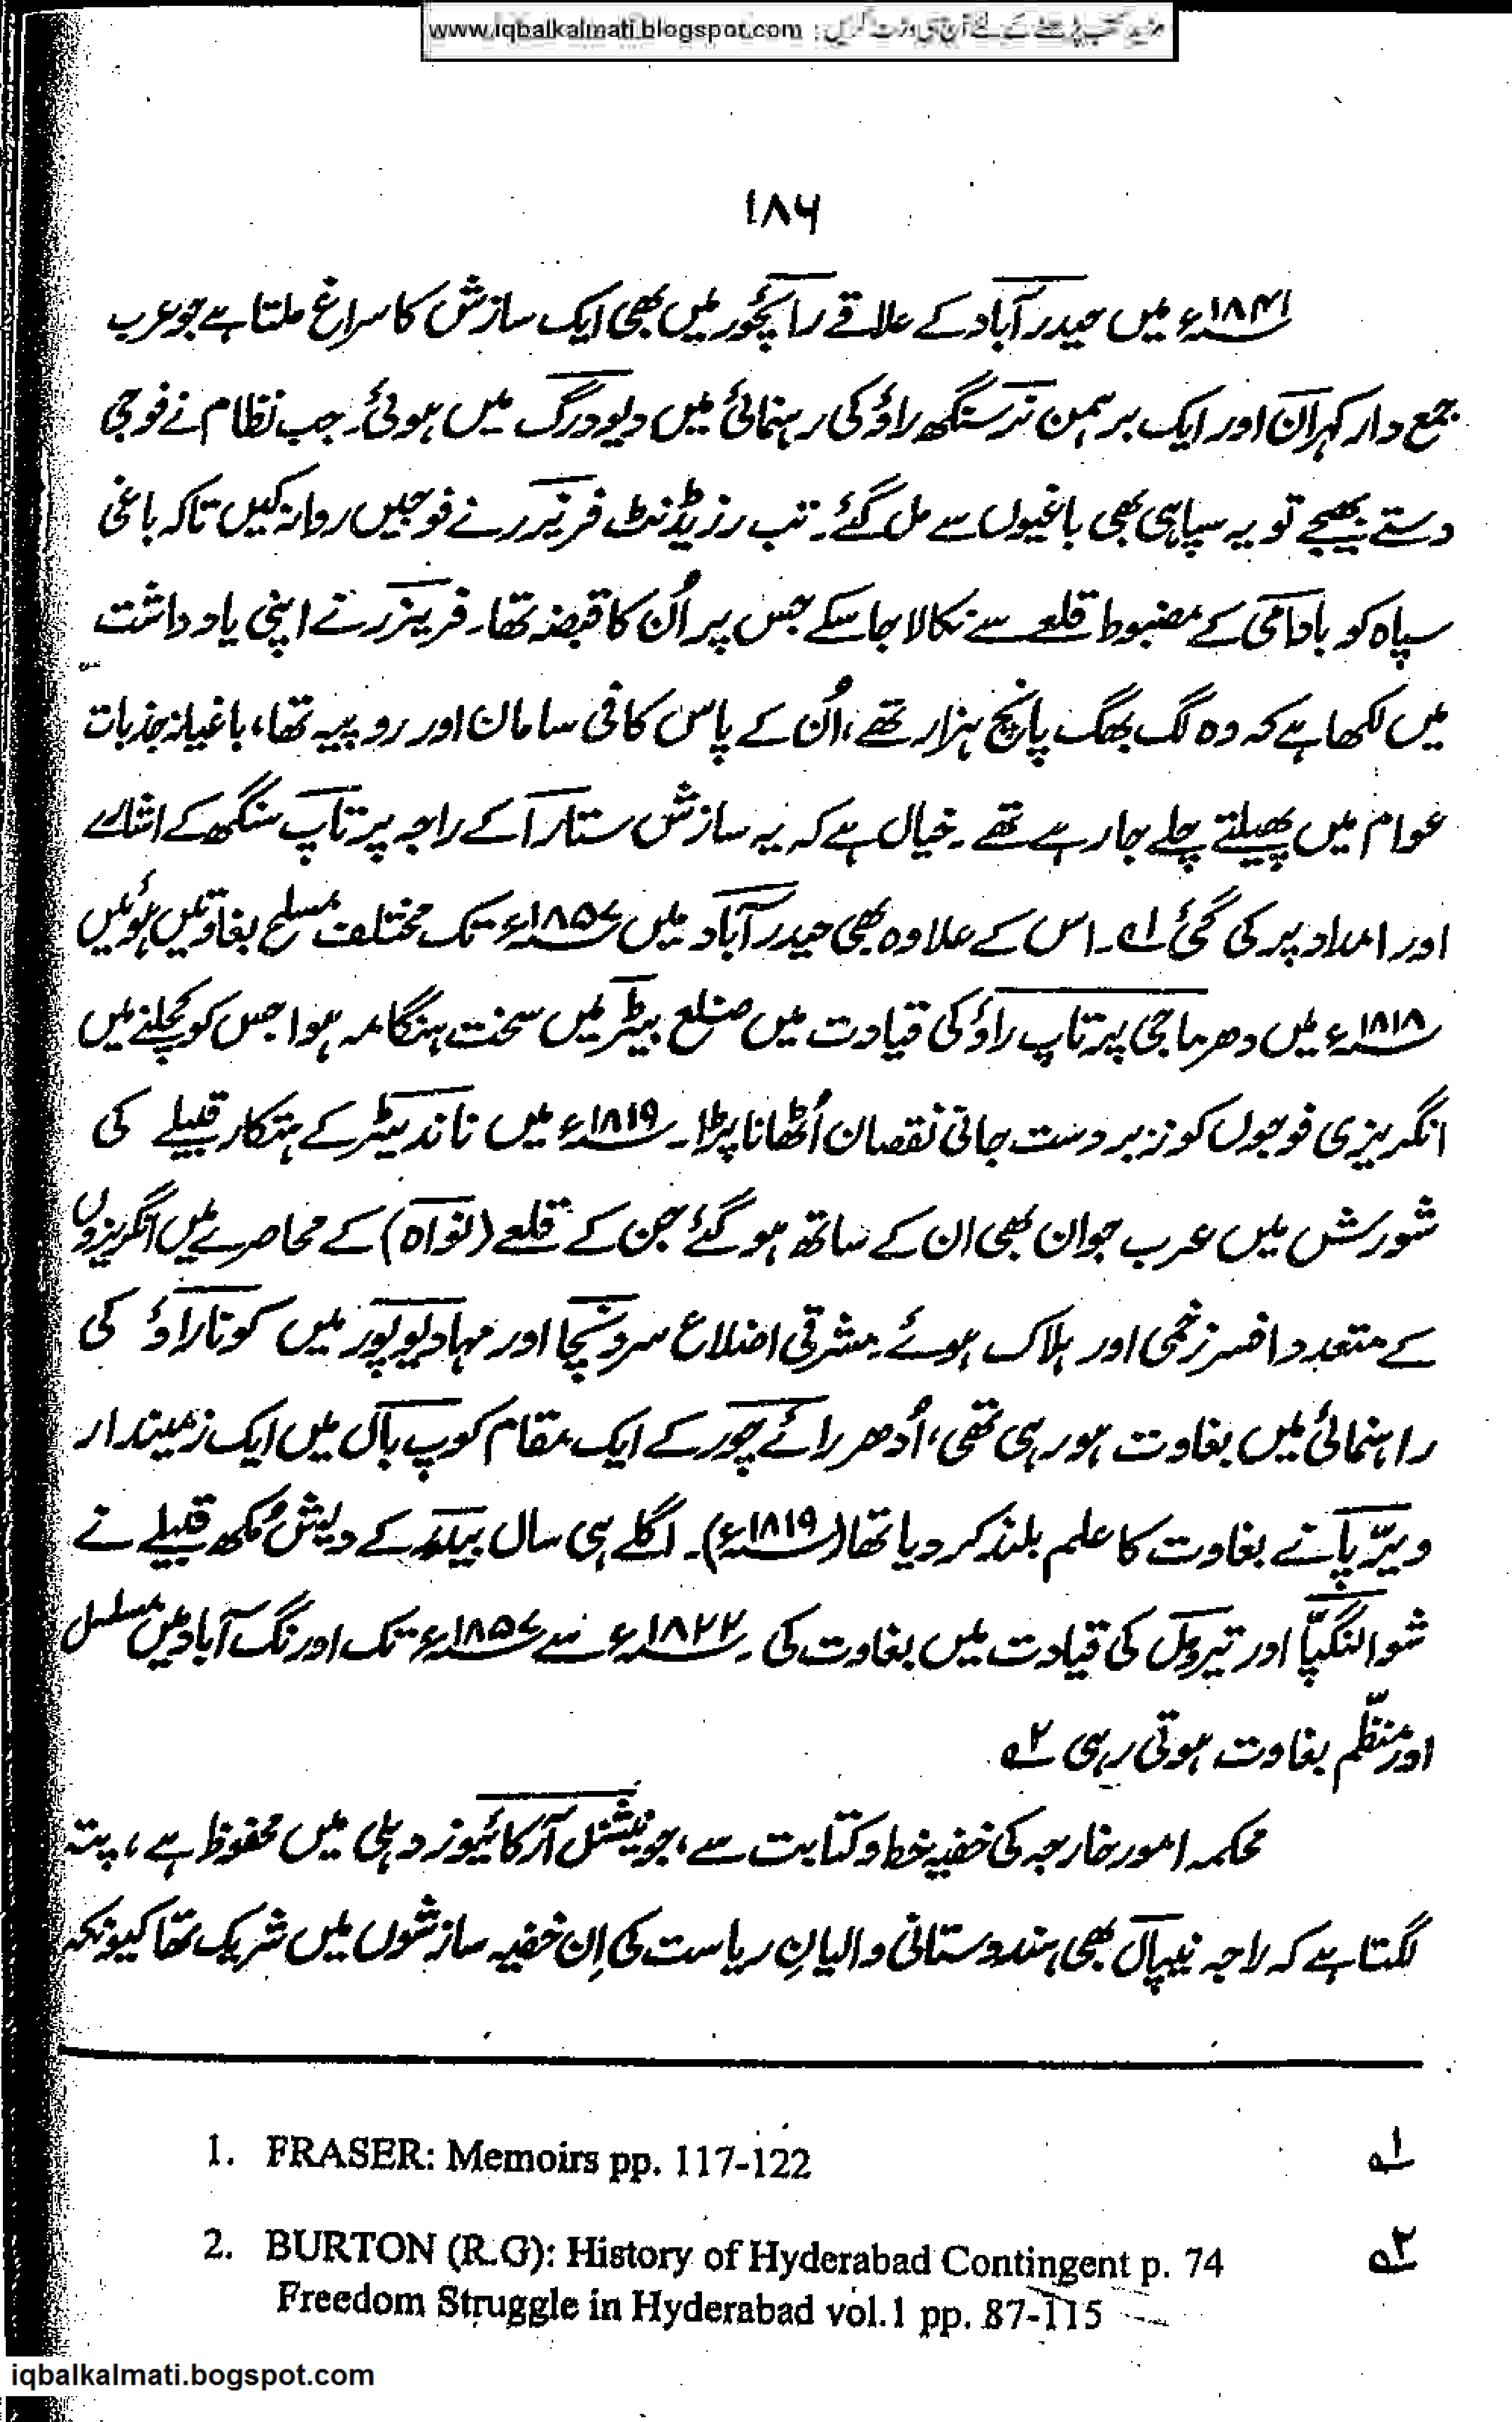 www.iqbalkalmati.blogspot.com : مزید کتب پڑھنے کے لئے آج ہی وزٹ کریں
۱۸۶
۱۸۴۱ء میں حیدرآباد کے علاقے رائچور میں بھی ایک سازش کا سراغ ملتا ہے جو عرب
جمع دار کہران اور ایک برہمن نرسنگھ راؤ کی رہنمائی میں دیودرگ میں ہوئی۔ جب نظام نے فوجی
دستے بھیجے تو یہ سپاہی بھی باغیوں سے مل گئے۔ تب رزیڈنٹ فریزر نے فوجیں روانہ کیں تاکہ باغی
سپاہ کو بادامی کے مضبوط قلعے سے نکالا جا سکے جس پر اُن کا قبضہ تھا۔ فریزر نے اپنی یادداشت
میں لکھا ہے کہ وہ لگ بھگ پانچ ہزار تھے، اُن کے پاس کافی سامان اور روپیہ تھا، باغیانہ جذبات
عوام میں پھیلتے چلے جا رہے تھے۔ خیال ہے کہ یہ سازش ستارا کے راجہ پرتاپ سنگھ کے اشارے
اور امداد پر کی گئی ۱؎۔ اس کے علاوہ بھی حیدرآباد میں ۱۸۵۷ء تک مختلف مسلح بغاوتیں ہوئیں
۱۸۱۸ء میں دھرماجی پرتاپ راؤ کی قیادت میں ضلع بیڑ میں سخت ہنگامہ ہوا جس کو کچلنے میں
انگریزی فوجوں کو زبردست جانی نقصان اُٹھانا پڑا۔ ۱۸۱۹ء میں ناندیڑ کے ہتکار قبیلے کی
شورش میں عرب جوان بھی ان کے ساتھ ہو گئے جن کے قلعے (نواہ) کے محاصرے میں انگریزوں
کے متعدد افسر زخمی اور ہلاک ہوئے۔ مشرقی اضلاع سرونچا اور مہادیوپور میں کونا راؤ کی
راہنمائی میں بغاوت ہو رہی تھی، اُدھر رائے چور کے ایک مقام کوپ بال میں ایک زمیندار
ویرّپا نے بغاوت کا علم بلند کر دیا تھا (۱۸۱۹ء)۔ اگلے ہی سال بیدر کے دیش مُکھ قبیلے نے
شوالنگپّا اور تیرومل کی قیادت میں بغاوت کی۔ ۱۸۲۲ء سے ۱۸۵۷ء تک اورنگ آباد میں مسلسل
اور منظّم بغاوت ہوتی رہی ۲؎
محکمہ امور خارجہ کی خفیہ خط و کتابت سے، جو نیشنل آرکائیوز دہلی میں محفوظ ہے، پتہ
لگتا ہے کہ راجہ نیپال بھی ہندوستانی والیانِ ریاست کی اِن خفیہ سازشوں میں شریک تھا کیونکہ
1. FRASER: Memoirs pp. 117-122 ۱؎
2. BURTON (R.G): History of Hyderabad Contingent p. 74 ۲؎
Freedom Struggle in Hyderabad vol.1 pp. 87-115
iqbalkalmati.bogspot.com